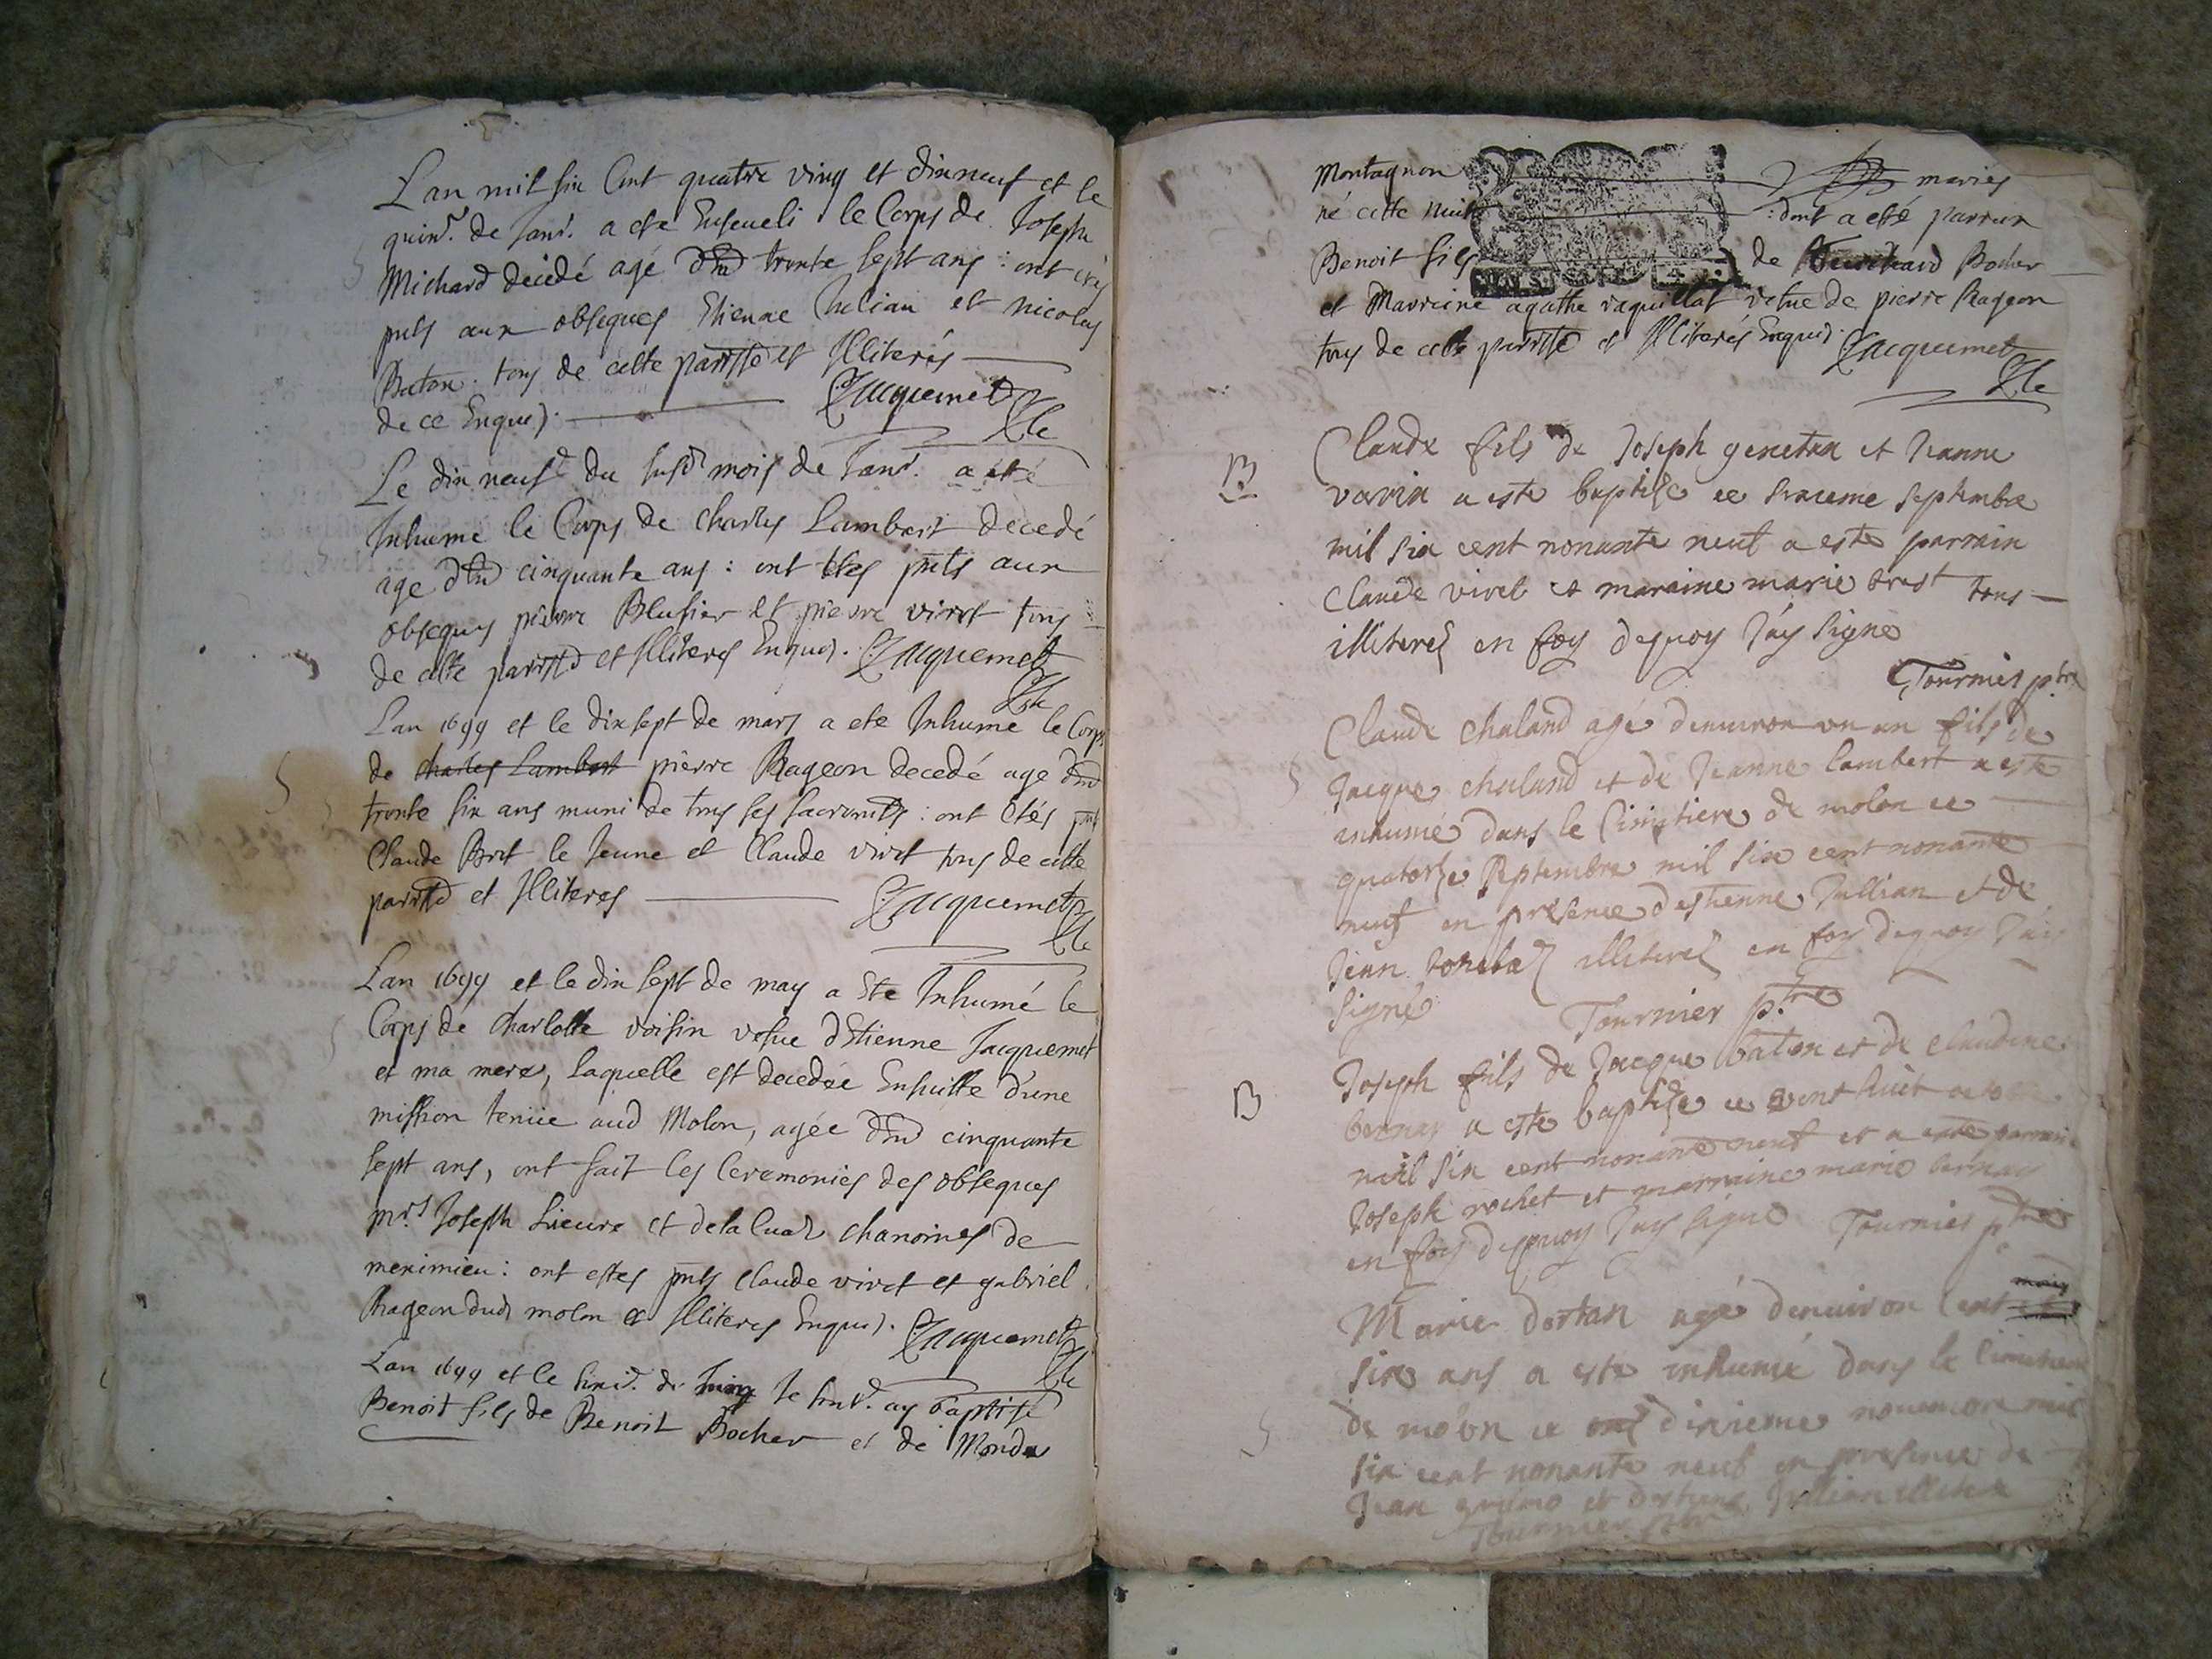 Lan mil six Cent quatre ving et dixneuf et le
quinr. de Janr. a ete Enseveli le Corps de Joseph
Michard decedé agé d'En trente sept ans : ont etés
pnts aux obseques Etienne Julian et nicolas
Baton. tous de cette parrsse et Illiterés
de ce Enquis. Jacquemet
Le dix neufe du susd mois de Janr. a été
Inhume le Corps de charles Lambert decedé
age d'En cinquante ans : ont etes pnts aux
obseques pierre Blusier et pierre vivet tous
de cette parrsse et Illiteres Enquis. Jacquemet
Lan 1699 et le dix sept de mars a ete Inhumé le Corps
de charles Lambert pierre Rageon decedé age d'En
trente six ans muni de tous ses sacremts : ont etés pnts
Claude Bret le Jeune et Claude vivet tous de cette
parrsse et Illiteres Jacquemet
Lan 1699 et le dix sept de may a Ete Inhumé le
Corps de Charlotte voisin vefue d'Etienne Jacquemet
et ma mere, laquelle est decedée Ensuitte d'une
mission teniie aud Molon, agée d'En cinquante
sept ans, ont fait les Ceremonies des obseques
mrs Joseph Lieure et chanoines de
meximieu : ont estes pnts Claude vivet et gabriel
Rageon dud molon et Illiteres Enquis. Jacquemet
Lan 1699 et le de le ay baptisé
Benoit fils de Benoit Bocher et de
Montagnon mariés
né cette nuit : dont a eté parrein
Benoit fils de Bocher
et Marreine agathe vaquillat vefue de pierre Rageon
tous de cette parrsse et Illiterés Enquis. Jacquemet
B
Claude fils de Joseph genetan et Jeanne
varin a este baptise ce Septembre
mil six cent nonante neuf a este parrain
Claude vivet et maraine marie bret tous
illiteres en foy dequoy J'ay signe
Tournier ptre
Claude Chaland agé denuiron un an fils de
Jacque chaland et de Jeanne lambert a este
inhumé dans le Cimitiere de molon ce
quatorse Septembre mil six cent nonante
neuf en présence destienne Jullian et de
Jean illiteres en foy dequoy J'ay
signé Tournier ptre
B
Joseph fils de Jacque baton et de claudine
bernay a este baptise ce vint huit octobre
mil six cent nonante neuf et a este parrain
Joseph rochet et marraine marie bernay
en foy dequoy J'ay signe Tournier ptre
Marie dortan agé denuiron cent
six ans a este inhumé dans le Cimitiere
de molon ce dixieme novembre mil
six cent nonante neuf en presence de
Jean et destienne Jullian illitere
Tournier ptre